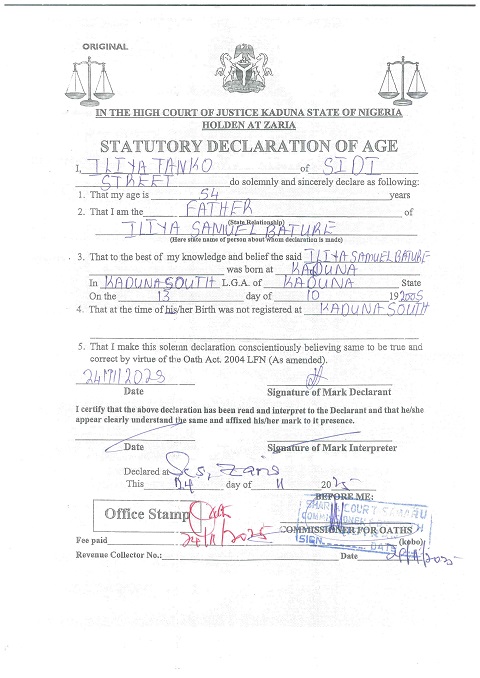 ORIGINAL
IN THE HIGH COURT OF JUSTICE KADUNA STATE OF NIGERIA
HOLDEN AT ZARIA
STATUTORY DECLARATION OF AGE
I, ILIYA TANKO of SIDI
STREET do solemnly and sincerely declare as following:
1. That my age is 54 years
2. That I am the FATHER of
(State Relationship)
ILIYA SAMUEL BATURE
(Here state name of person about whom declaration is made)
3. That to the best of my knowledge and belief the said ILIYA SAMUEL BATURE
was born at KADUNA
In KADUNA SOUTH L.G.A. of KADUNA State
On the 13 day of 10 19 2005
4. That at the time of his/her Birth was not registered at KADUNA SOUTH
5. That I make this solemn declaration conscientiously believing same to be true and
correct by virtue of the Oath Act. 2004 LFN (As amended).
24/11/2025
Date Signature of Mark Declarant
I certify that the above declaration has been read and interpret to the Declarant and that he/she
appear clearly understand the same and affixed his/her mark to it presence.
Date Signature of Mark Interpreter
Declared at Zaria
This 24 day of 11 2025
BEFORE ME:
Office Stamp
SHARIA COURT SAMARU
COMMISSIONER FOR OATHS
SIGN. DATE
Fee paid 24/11/2025 (kobo)
Revenue Collector No.: Date